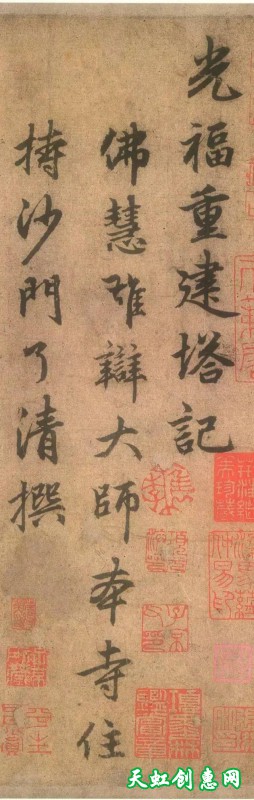 光福重建塔記
佛慧雄辯大師本寺住
持沙門了清撰
天虹创惠网